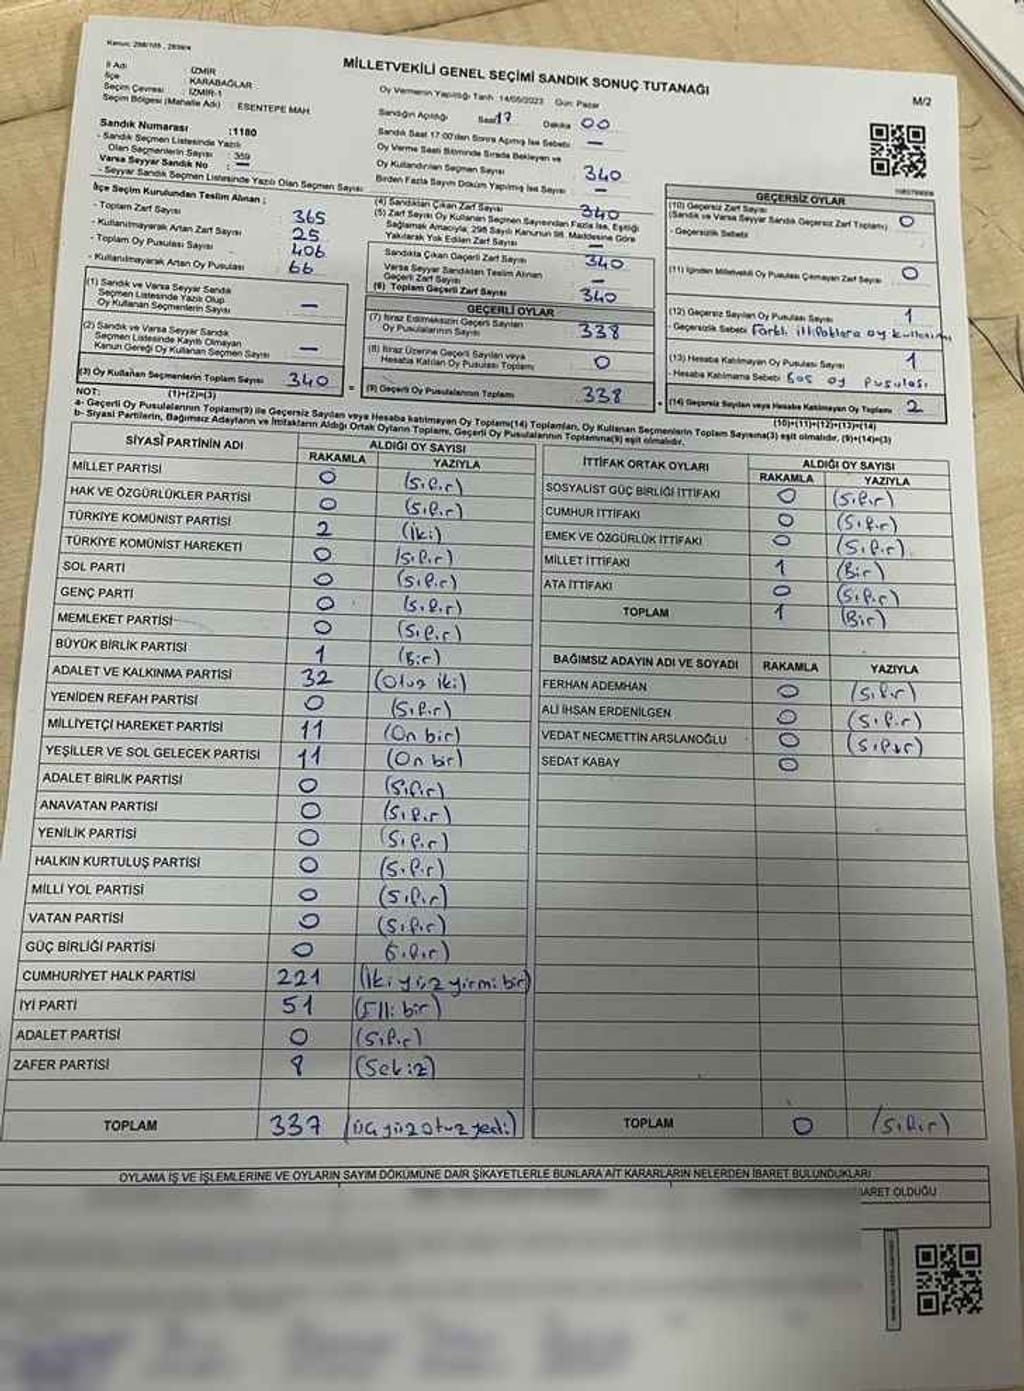 Kanun: 298/105, 2839/4
MİLLETVEKİLİ GENEL SEÇİMİ SANDIK SONUÇ TUTANAĞI
M/2
İl Adı : İZMİR
İlçe : KARABAĞLAR
Seçim Çevresi : İZMİR-1
Seçim Bölgesi (Mahalle Adı) : ESENTEPE MAH
Sandık Numarası :1180
- Sandık Seçmen Listesinde Yazılı
Olan Seçmenlerin Sayısı : 359
Varsa Seyyar Sandık No : —
- Seyyar Sandık Seçmen Listesinde Yazılı Olan Seçmen Sayısı
Oy Vermenin Yapıldığı Tarih :14/05/2023 Gün: Pazar
Sandığın Açıldığı Saat 17 Dakika 00
Sandık Saat 17:00'den Sonra Açılmış İse Sebebi —
Oy Verme Saati Bitiminde Sırada Bekleyen ve
Oy Kullandırılan Seçmen Sayısı 340
Birden Fazla Sayım Döküm Yapılmış İse Sayısı —
İlçe Seçim Kurulundan Teslim Alınan ;
- Toplam Zarf Sayısı 365
- Kullanılmayarak Artan Zarf Sayısı 25
- Toplam Oy Pusulası Sayısı 406
- Kullanılmayarak Artan Oy Pusulası 66
(1) Sandık ve Varsa Seyyar Sandık
Seçmen Listesinde Yazılı Olup
Oy Kullanan Seçmenlerin Sayısı —
(2) Sandık ve Varsa Seyyar Sandık
Seçmen Listesinde Kayıtlı Olmayan
Kanun Gereği Oy Kullanan Seçmen Sayısı —
(3) Oy Kullanan Seçmenlerin Toplam Sayısı 340
(1)+(2)=(3)
(4) Sandıktan Çıkan Zarf Sayısı 340
(5) Zarf Sayısı Oy Kullanan Seçmen Sayısından Fazla İse, Eşitliği
Sağlamak Amacıyla, 298 Sayılı Kanunun 98. Maddesine Göre
Yakılarak Yok Edilen Zarf Sayısı —
Sandıkta Çıkan Geçerli Zarf Sayısı 340
Varsa Seyyar Sandıktan Teslim Alınan
Geçerli Zarf Sayısı —
(6) Toplam Geçerli Zarf Sayısı 340
GEÇERLİ OYLAR
(7) İtiraz Edilmeksizin Geçerli Sayılan
Oy Pusulalarının Sayısı 338
(8) İtiraz Üzerine Geçerli Sayılan veya
Hesaba Katılan Oy Pusulası Toplamı 0
= (9) Geçerli Oy Pusulalarının Toplamı 338
GEÇERSİZ OYLAR
(10) Geçersiz Zarf Sayısı
(Sandık ve Varsa Seyyar Sandık Geçersiz Zarf Toplamı) 0
- Geçersizlik Sebebi
(11) İçinden Milletvekili Oy Pusulası Çıkmayan Zarf Sayısı 0
(12) Geçersiz Sayılan Oy Pusulası Sayısı 1
- Geçersizlik Sebebi Farklı ittifaklara oy kullanımı
(13) Hesaba Katılmayan Oy Pusulası Sayısı 1
- Hesaba Katılmama Sebebi Boş oy pusulası
+ (14) Geçersiz Sayılan veya Hesaba Katılmayan Oy Toplamı 2
(10)+(11)+(12)+(13)=(14)
NOT:
a- Geçerli Oy Pusulalarının Toplamı(9) ile Geçersiz Sayılan veya Hesaba katılmayan Oy Toplamı(14) Toplamları, Oy Kullanan Seçmenlerin Toplam Sayısına(3) eşit olmalıdır, (9)+(14)=(3)
b- Siyasi Partilerin, Bağımsız Adayların ve İttifakların Aldığı Ortak Oyların Toplamı, Geçerli Oy Pusulalarının Toplamına(9) eşit olmalıdır.
SİYASİ PARTİNİN ADI ALDIĞI OY SAYISI
RAKAMLA YAZIYLA
MİLLET PARTİSİ 0 (Sıfır)
HAK VE ÖZGÜRLÜKLER PARTİSİ 0 (Sıfır)
TÜRKİYE KOMÜNİST PARTİSİ 2 (İki)
TÜRKİYE KOMÜNİST HAREKETİ 0 (Sıfır)
SOL PARTİ 0 (Sıfır)
GENÇ PARTİ 0 (Sıfır)
MEMLEKET PARTİSİ 0 (Sıfır)
BÜYÜK BİRLİK PARTİSİ 1 (Bir)
ADALET VE KALKINMA PARTİSİ 32 (Otuz iki)
YENİDEN REFAH PARTİSİ 0 (Sıfır)
MİLLİYETÇİ HAREKET PARTİSİ 11 (On bir)
YEŞİLLER VE SOL GELECEK PARTİSİ 11 (On bir)
ADALET BİRLİK PARTİSİ 0 (Sıfır)
ANAVATAN PARTİSİ 0 (Sıfır)
YENİLİK PARTİSİ 0 (Sıfır)
HALKIN KURTULUŞ PARTİSİ 0 (Sıfır)
MİLLİ YOL PARTİSİ 0 (Sıfır)
VATAN PARTİSİ 0 (Sıfır)
GÜÇ BİRLİĞİ PARTİSİ 0 (Sıfır)
CUMHURİYET HALK PARTİSİ 221 (İki yüz yirmi bir)
İYİ PARTİ 51 (Elli bir)
ADALET PARTİSİ 0 (Sıfır)
ZAFER PARTİSİ 8 (Sekiz)
TOPLAM 337 (üç yüz otuz yedi)
İTTİFAK ORTAK OYLARI ALDIĞI OY SAYISI
RAKAMLA YAZIYLA
SOSYALİST GÜÇ BİRLİĞİ İTTİFAKI 0 (Sıfır)
CUMHUR İTTİFAKI 0 (Sıfır)
EMEK VE ÖZGÜRLÜK İTTİFAKI 0 (Sıfır)
MİLLET İTTİFAKI 1 (Bir)
ATA İTTİFAKI 0 (Sıfır)
TOPLAM 1 (Bir)
BAĞIMSIZ ADAYIN ADI VE SOYADI RAKAMLA YAZIYLA
FERHAN ADEMHAN 0 (Sıfır)
ALİ İHSAN ERDENİLGEN 0 (Sıfır)
VEDAT NECMETTİN ARSLANOĞLU 0 (Sıfır)
SEDAT KABAY 0
TOPLAM 0 (Sıfır)
OYLAMA İŞ VE İŞLEMLERİNE VE OYLARIN SAYIM DÖKÜMÜNE DAİR ŞİKAYETLERLE BUNLARA AİT KARARLARIN NELERDEN İBARET BULUNDUKLARI
BARET OLDUĞU